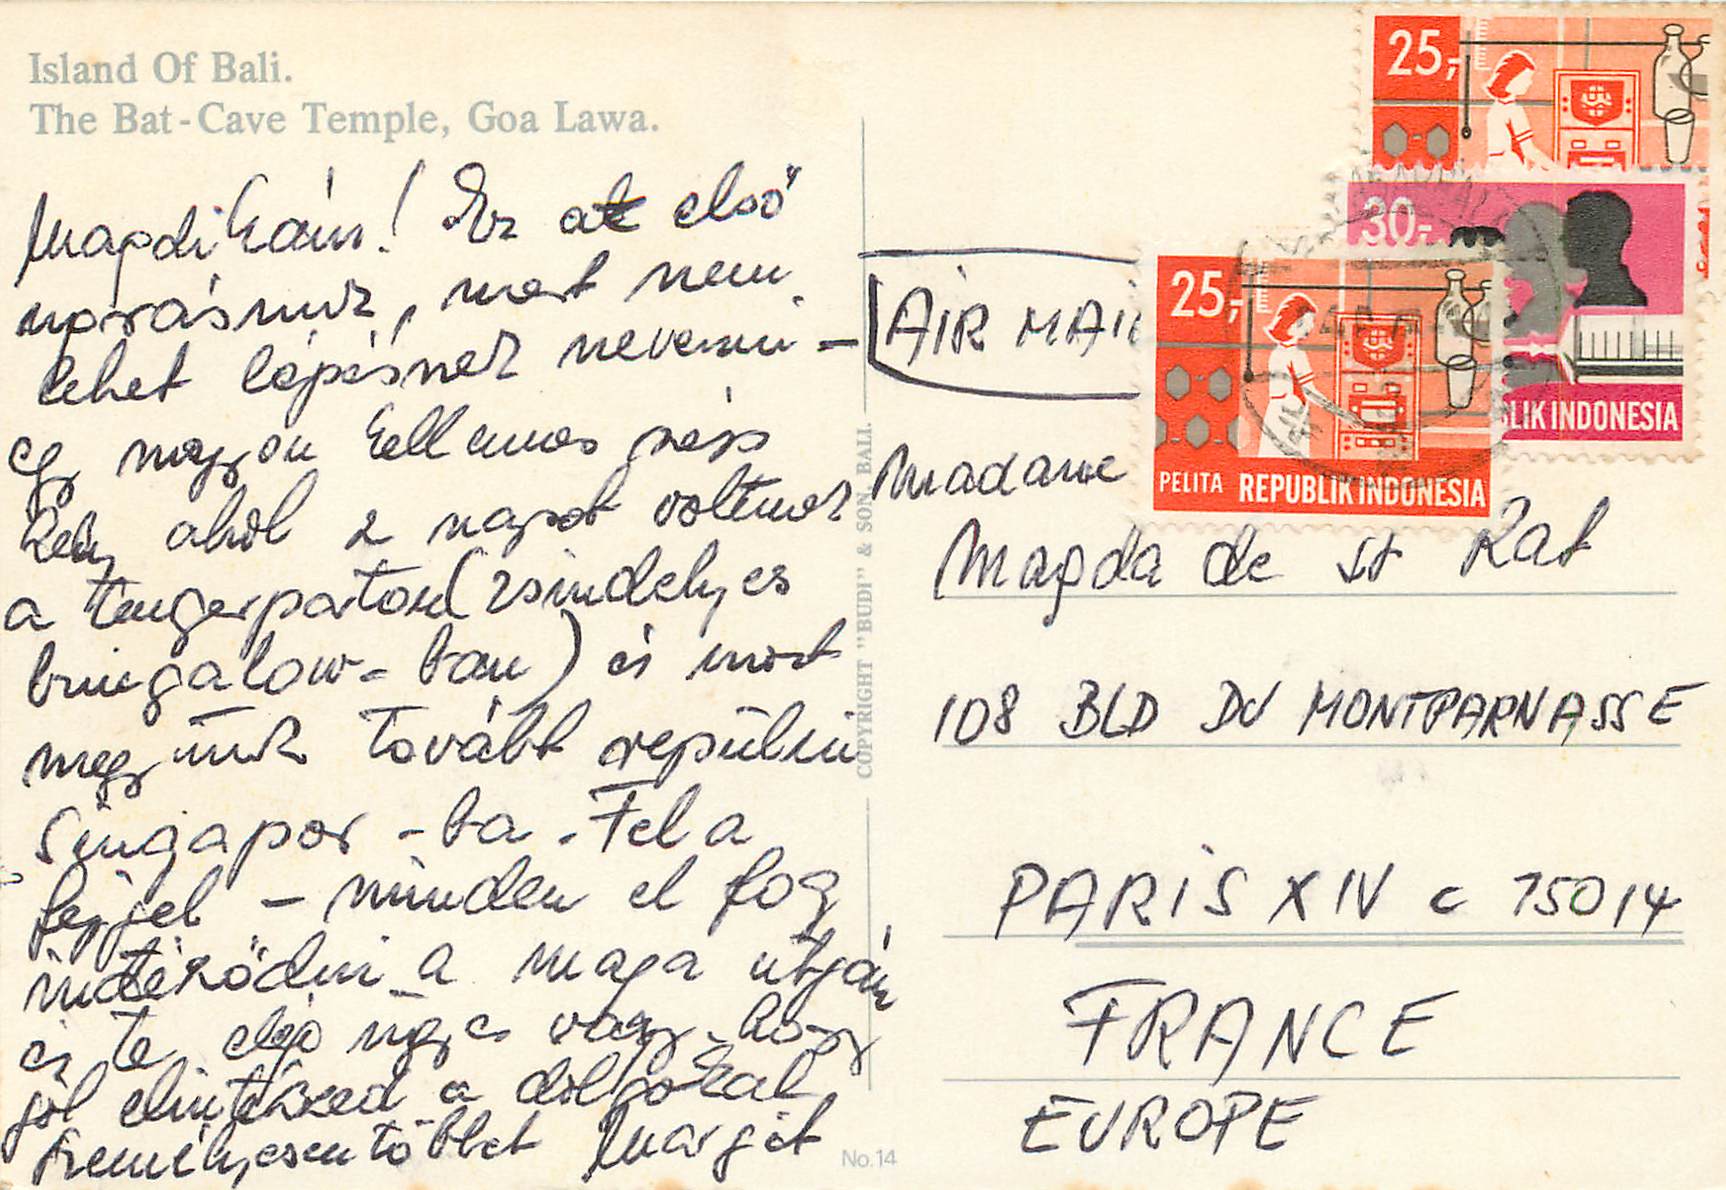 Island Of Bali.
The Bat-Cave Temple, Goa Lawa.
Magdikám! Ez az első
írásunk, mert nem
lehet lépésnek nevezni –
egy nagyon kellemes
hely ahol 2 napot voltunk
a tengerparton (zsindelyes
bungalow-ban) és most
megyünk tovább repülni
Singapor-ba. Fel a
fejjel – minden el fog
intéződni a maga útján
és te elég ügyes vagy, hogy
jól elintézzed a dolgokat
Remélhetően többet Margit
AIR MAIL
Madame
Magda de St Rat
108 BLD DU MONTPARNASSE
PARIS XIV e 75014
FRANCE
EUROPE
COPYRIGHT "BUDI" & SON, BALI.
No.14
25,-
30,-
BLIK INDONESIA
25,-
PELITA REPUBLIK INDONESIA